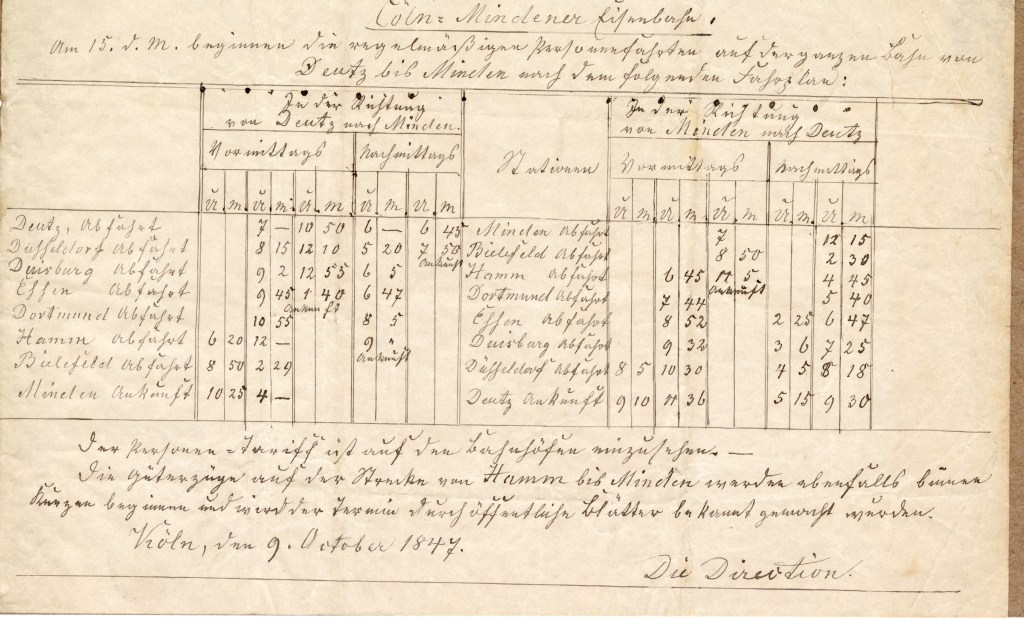 Cöln-Mindener Eisenbahn.
Am 15. d. M. beginnen die regelmäßigen Personenfahrten auf der ganzen Bahn von
Deutz bis Minden nach dem folgenden Fahrplan:
In der Richtung von Deutz nach Minden. Stationen In der Richtung von Minden nach Deutz
Vormittags Nachmittags Vormittags Nachmittags
U. M. U. M. U. M. U. M. U. M. U. M. U. M. U. M. U. M. U. M. U. M.
Deutz, Abfahrt 7 — 10 50 6 — 6 45 Minden Abfahrt 7 12 15
Düsseldorf Abfahrt 8 15 12 10 5 20 7 50 Bielefeld Abfahrt 8 50 2 30
Ankunft
Duisburg Abfahrt 9 2 12 55 6 5 Hamm Abfahrt 6 45 11 5 4 45
Ankunft
Essen Abfahrt 9 45 1 40 6 47 Dortmund Abfahrt 7 44 5 40
Ankunft
Dortmund Abfahrt 10 55 8 5 Essen Abfahrt 8 52 2 25 6 47
Hamm Abfahrt 6 20 12 — 9 " Duisburg Abfahrt 9 32 3 6 7 25
Ankunft
Bielefeld Abfahrt 8 50 2 29 Düsseldorf Abfahrt 8 5 10 30 4 5 8 18
Minden Ankunft 10 25 4 — Deutz Ankunft 9 10 11 36 5 15 9 30
Der Personen-Tariff ist auf den Bahnhöfen einzusehen. —
Die Güterzüge auf der Strecke von Hamm bis Minden werden ebenfalls binnen
Kurzen beginnen und wird der Termin durch öffentliche Blätter bekannt gemacht werden.
Köln, den 9. October 1847.
Die Direction.